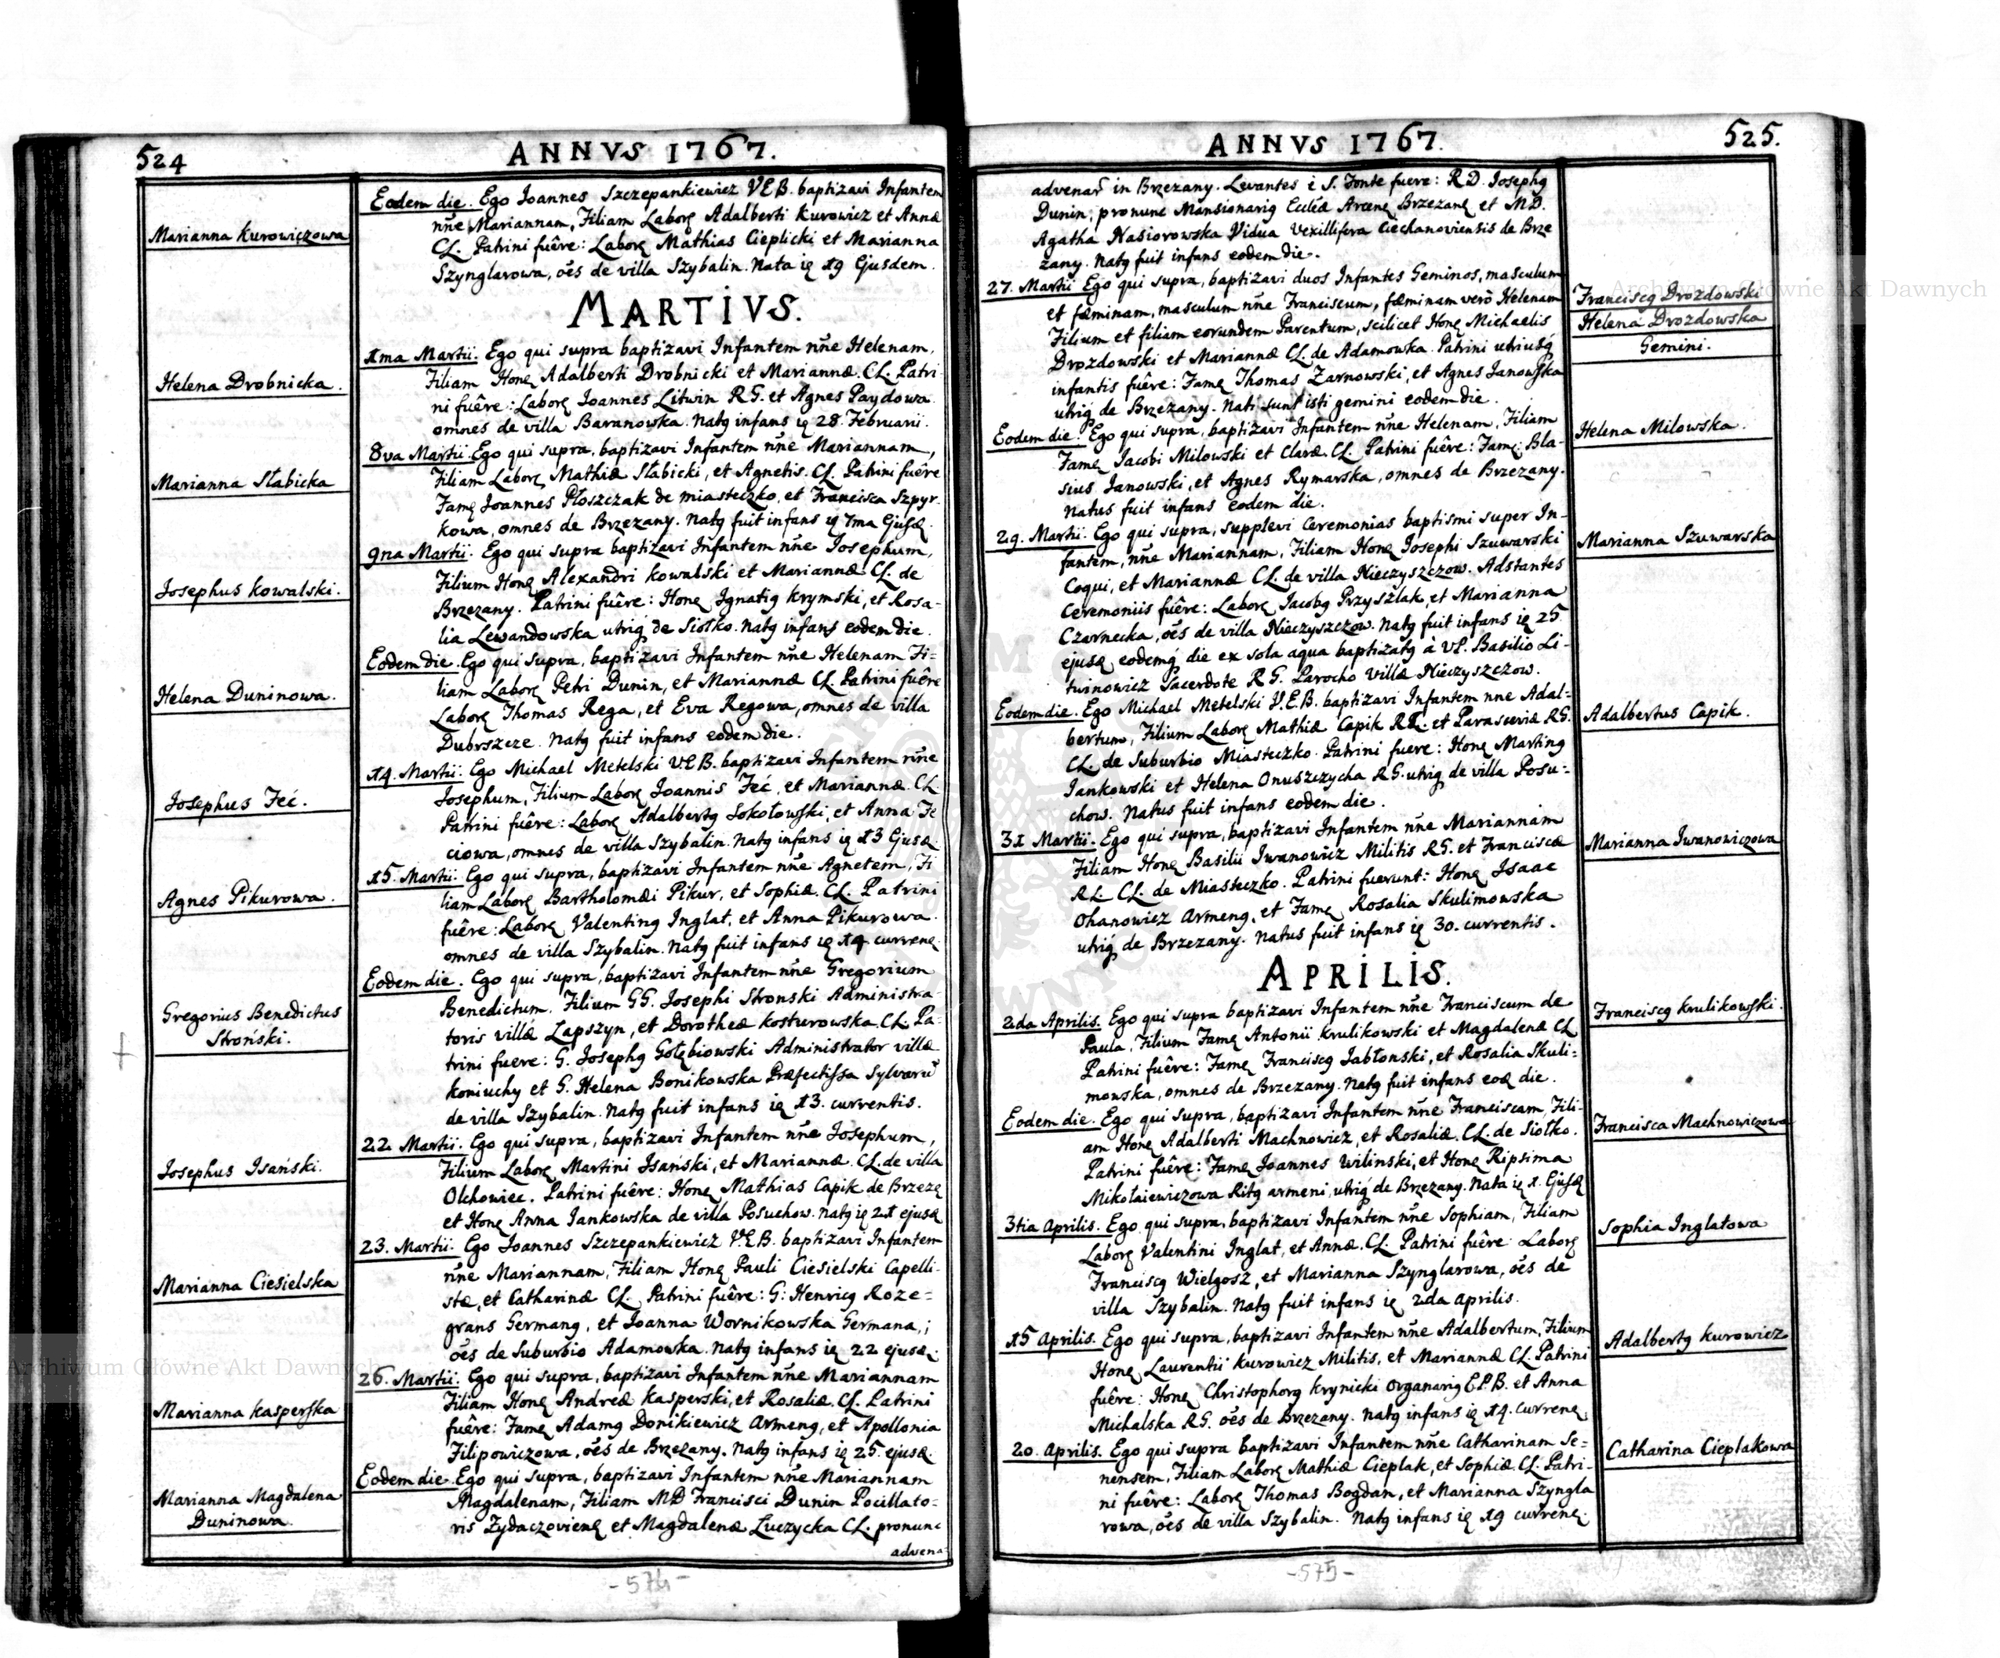 524
ANNVS 1767.
Marianna Kurowiczowa
Eodem die. Ego Joannes Szczepankiewicz V.E.B. baptizavi Infantem
nñe Mariannam, Filiam Laborę Adalberti Kurowicz et Annæ
CL. Patrini fuêre: Laborę Mathias Cieplicki et Marianna
Szynglarowa, oẽs de villa Szybalin. Nata ię 19 Ejusdem.
MARTIVS.
Helena Drobnicka.
1ma Martii. Ego qui supra baptizavi Infantem nñe Helenam,
Filiam Honę Adalberti Drobnicki et Mariannæ. CL. Patri-
ni fuêre: Laborę Joannes Litwin R.G. et Agnes Paydowa.
omnes de villa Baranowka. Natꝯ infans ię 28. Februarii.
Marianna Słabicka
8va Martii. Ego qui supra, baptizavi Infantem nñe Mariannam,
Filiam Laborę Mathiæ Słabicki, et Agnetis. CL. Patrini fuêre
Famę Joannes Płoszczak de miasteczko, et Francisca Szpyr-
kowa, omnes de Brzezany. Natꝯ fuit infans ię 7ma Ejusę.
Josephus Kowalski.
9na Martii. Ego qui supra baptizavi Infantem nñe Josephum,
Filium Honę Alexandri Kowalski et Mariannæ CL. de
Brzezany. Patrini fuêre: Honę Ignatiꝯ Krymski, et Rosa-
lia Lewandowska utriꝗ de Siołko. Natꝯ infans eodem die.
Helena Duninowa.
Eodem die. Ego qui supra, baptizavi Infantem nñe Helenam Fi-
liam Laborę Petri Dunin, et Mariannæ CL. Patrini fuêre
Laborę Thomas Rega, et Eva Regowa, omnes de villa
Dubrszcze. Natꝯ fuit infans eodem die.
Josephus Feć.
14. Martii. Ego Michael Metelski V.E.B. baptizavi Infantem nñe
Josephum, Filium Laborę Joannis Feć, et Mariannæ. CL.
Patrini fuêre: Laborę Adalbertꝯ Sokołowski, et Anna Fe
ciowa, omnes de villa Szybalin. Natꝯ infans ię 13 Ejusę.
Agnes Pikurowa.
15. Martii. Ego qui supra, baptizavi Infantem nñe Agnetem, Fi
liam Laborę Bartholomæi Pikur, et Sophiæ. CL. Patrini
fuêre: Laborę Valentinꝯ Inglat, et Anna Pikurowa.
omnes de villa Szybalin. Natꝯ fuit infans ię 14 currenę.
Gregorius Benedictus
Stroński.
Eodem die. Ego qui supra, baptizavi Infantem nñe Gregorium
Benedictum. Filium GG. Josephi Stronski Administra-
toris villæ Lapszyn, et Dorotheæ Kosturowska CL. Pa-
trini fuere: G. Josephꝯ Gołębiowski Administrator villæ
Koniuchy et G. Helena Bonikowska Præfectissa Sylvarũ
de villa Szybalin. Natꝯ fuit infans ię 13. currentis.
Josephus Isański.
22. Martii. Ego qui supra, baptizavi Infantem nñe Josephum,
Filium Laborę Martini Isański, et Mariannæ. CL. de villa
Olchowiec. Patrini fuêre: Honę Mathias Capik de Brzezę
et Honę Anna Jankowska de villa Posuchow. Natꝯ ię 21 ejusę
Marianna Ciesielska
23. Martii. Ego Joannes Szczepankiewicz V.E.B. baptizavi Infantem
nñe Mariannam, Filiam Honę Pauli Ciesielski Capelli-
stæ, et Catharinæ CL. Patrini fuêre: G. Henricꝯ Roze-
grans Germanꝯ, et Joanna Wornikowska Germana,
oẽs de Suburbio Adamowka. Natꝯ infans ię 22 ejusę.
Marianna Kasperska
26. Martii. Ego qui supra, baptizavi Infantem nñe Mariannam
Filiam Honę Andreæ Kasperski, et Rosaliæ. CL. Patrini
fuêre: Famę Adamꝯ Donikiewicz Armenꝯ, et Apollonia
Filipowiczowa, oẽs de Brzezany. Natꝯ infans ię 25. ejusę.
Marianna Magdalena
Duninowa.
Eodem die. Ego qui supra, baptizavi Infantem nñe Mariannam
Magdalenam, Filiam MD Francisci Dunin Pocillato-
ris Zydaczovienę et Magdalenæ Łuczycka CL. pronunc
advena
-574-
ANNVS 1767.
525.
advenaꝝ in Brzezany. Levantes è S. Fonte fuere: R.D. Josephꝯ
Dunin, pronunc Mansionariꝯ Ecclæ Arcenę Brzezanę et MD.
Agatha Nasiorowska Vidua Vexillifera Ciechanoviensis de Brze
zany. Natꝯ fuit infans eodem die.
27. Martii Ego qui supra, baptizavi duos Infantes Geminos, masculum
et fæminam, masculum nñe Franciscum, fæminam verò Helenam
Filium et filiam eorundem Parentum, scilicet Honę Michaelis
Drozdowski et Mariannæ CL. de Adamowka. Patrini utriusꝗ
infantis fuêre: Famę Thomas Zarnowski, et Agnes Janowska
utriꝗ de Brzezany. Nati sunt isti gemini eodem die.
Franciscꝯ Drozdowski
Helena Drozdowska
Gemini.
Eodem die. Ego qui supra, baptizavi Infantem nñe Helenam, Filiam
Famę Jacobi Milowski et Claræ. CL. Patrini fuêre: Famę Bla-
sius Janowski, et Agnes Rymarska, omnes de Brzezany.
Natus fuit infans eodem die.
Helena Milowska.
29. Martii. Ego qui supra, supplevi Ceremonias baptismi super In-
fantem, nñe Mariannam, Filiam Honę Josephi Szuwarski
Coqui, et Mariannæ CL. de villa Nieczyszczow. Adstantes
Ceremoniis fuêre: Laborę Jacobꝯ Przyszlak, et Marianna
Czarnecka, oẽs de villa Nieczyszczow. Natꝯ fuit infans ię 25
ejusę eodemꝗ die ex sola aqua baptizatꝯ à V.P. Basilio Li-
twinowicz Sacerdote R.G. Parocho villæ Nieczyszczow.
Marianna Szuwarska
Eodem die. Ego Michael Metelski V.E.B. baptizavi Infantem nne Adal-
bertum, Filium Laborę Mathiæ Capik R.L. et Parasceviæ R.G.
CL. de Suburbio Miasteczko. Patrini fuere: Honę Martinꝯ
Jankowski et Helena Onuszczycha R.G. utriꝗ de villa Posu-
chow. Natus fuit infans eodem die.
Adalbertus Capik.
31 Martii. Ego qui supra, baptizavi Infantem nñe Mariannam
Filiam Honę Basilii Iwanowicz Militis R.G. et Franciscæ
R.L. CL. de Miasteczko. Patrini fuerunt: Honę Isaac
Ohanowicz Armenꝯ, et Famę Rosalia Skulimowska
utriꝗ de Brzezany. Natus fuit infans ię 30. currentis.
Marianna Iwanowiczowa
APRILIS.
2da Aprilis. Ego qui supra baptizavi Infantem nñe Franciscum de
Paula, Filium Famę Antonii Krulikowski et Magdalenæ CL
Patrini fuêre: Famę Franciscꝯ Jabłonski, et Rosalia Skuli-
mowska, omnes de Brzezany. Natꝯ fuit infans eoę die.
Franciscꝯ Krulikowski.
Eodem die. Ego qui supra, baptizavi Infantem nñe Franciscam, Fili-
am Honę Adalberti Machnowicz, et Rosaliæ. CL. de Siołko.
Patrini fuêre: Famę Joannes Wilinski, et Honę Ripsima
Mikołaiewiczowa Ritꝯ armeni, utriꝗ de Brzezany. Nata ię 1. Ejusę
Francisca Machnowiczowa
3tia Aprilis. Ego qui supra, baptizavi Infantem nñe Sophiam, Filiam
Laborę Valentini Inglat, et Annæ. CL. Patrini fuêre: Laborę
Franciscꝯ Wielgosz, et Marianna Szynglarowa, oẽs de
villa Szybalin. Natꝯ fuit infans ię 2da Aprilis.
Sophia Inglatowa
15 Aprilis. Ego qui supra, baptizavi Infantem nñe Adalbertum, Filium
Honę Laurentii Kurowicz Militis, et Mariannæ CL. Patrini
fuêre: Honę Christophorꝯ Krynicki Organariꝯ E.P.B. et Anna
Michalska R.G. oẽs de Brzezany. Natꝯ infans ię 14. Currenę
Adalbertꝯ Kurowicz
20. Aprilis. Ego qui supra baptizavi Infantem nñe Catharinam Se-
nensem, Filiam Laborę Mathiæ Cieplak, et Sophiæ CL. Patri-
ni fuêre: Laborę Thomas Bogdan, et Marianna Szyngla
rowa, oẽs de villa Szybalin. Natꝯ infans ię 19 currenę.
Catharina Cieplakowa
-575-
Archiwum Główne Akt Dawnych
Archiwum Główne Akt Dawnych